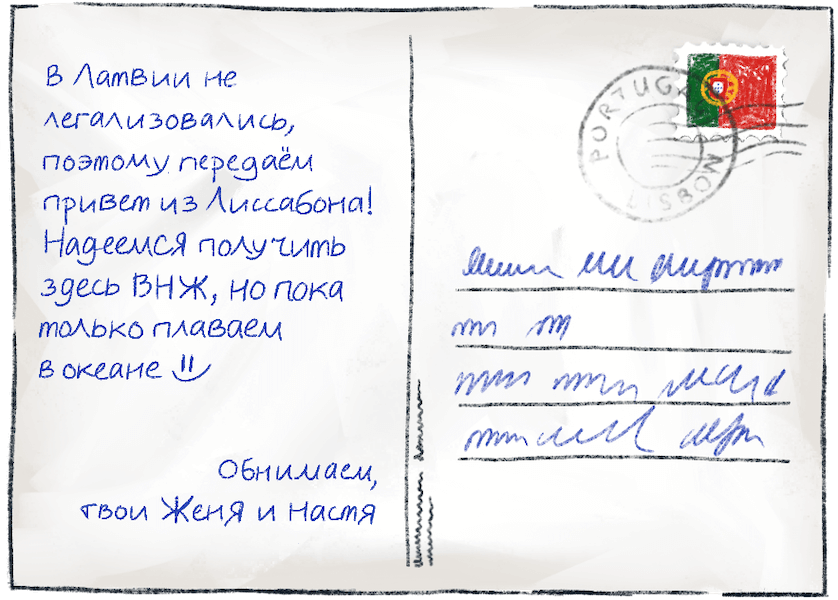 В Латвии не
легализовались,
поэтому передаём
привет из Лиссабона!
Надеемся получить
здесь ВНЖ, но пока
только плаваем
в океане
Обнимаем,
твои Женя и Настя
PORTUGAL
LISBON